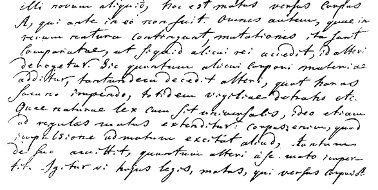 illi novum aliquid, hoc est motus versus corpus
A, qui ante in eo non fuit. Omnes autem, quae in
rerum natura contingunt mutationes ita sunt
comparatae, ut si quid alicui rei accedit, id alteri
derogetur. Sic quantum alicui corpori materiae
additur, tantundem decedit alteri, quot horas
somno impendo, totidem vigiliae detraho etc.
Quae naturae lex cum sit universalis, ideo etiam
ad regulas motus extenditur: corpus enim, quod
impulsione ad motum excitat aliud, tantum
de suo amittit, quantum alteri a se moto imper-
tit. Igitur vi hujus legis, motus, qui versus corpus B